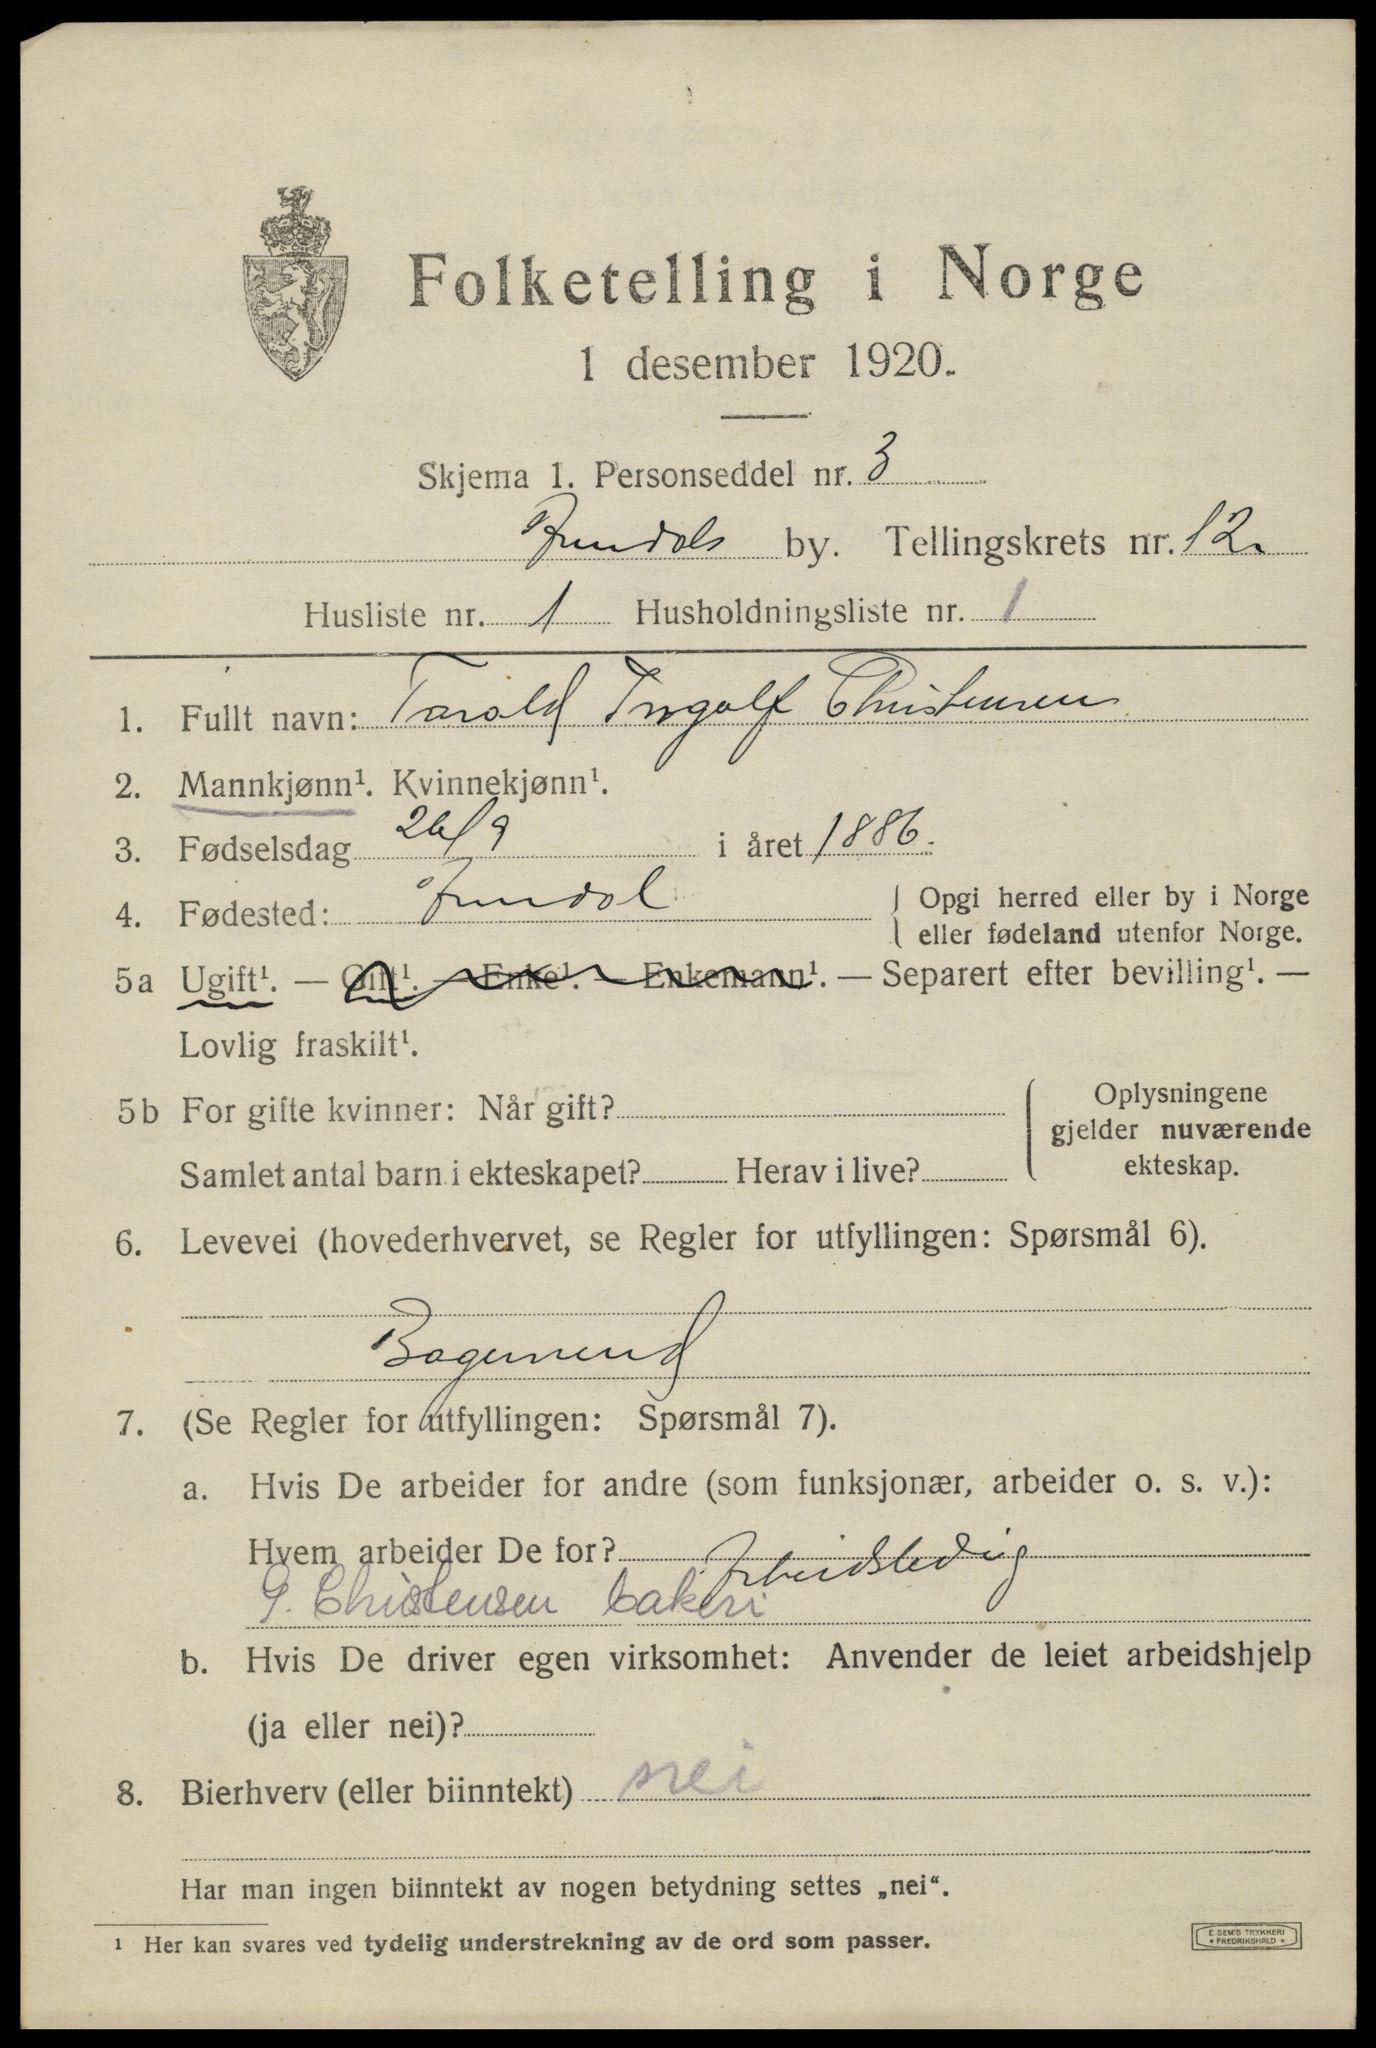 Folketelling i Norge
1 desember 1920.
Skjema 1. Personseddel nr. 3
Arendals by. Tellingskrets nr. 12
Husliste nr. 1 Husholdningsliste nr. 1
1. Fullt navn: Tarald Ingolf Christensen
2. Mannkjønn¹. Kvinnekjønn¹.
3. Fødselsdag 26/9 i året 1886.
4. Fødested: Arendal { Opgi herred eller by i Norge
eller fødeland utenfor Norge.
5a Ugift¹. — Gift¹. — Enke¹. — Enkemann¹. — Separert efter bevilling¹. —
Lovlig fraskilt¹.
5b For gifte kvinner: Når gift?
Samlet antal barn i ekteskapet? Herav i live?
Oplysningene
gjelder nuværende
ekteskap.
6. Levevei (hovederhvervet, se Regler for utfyllingen: Spørsmål 6).
Bagersvend
7. (Se Regler for utfyllingen: Spørsmål 7).
a. Hvis De arbeider for andre (som funksjonær, arbeider o. s. v.):
Hvem arbeider De for? Arbeidsledig
G. Christensen bakeri
b. Hvis De driver egen virksomhet: Anvender de leiet arbeidshjelp
(ja eller nei)?
8. Bierhverv (eller biinntekt) nei
Har man ingen biinntekt av nogen betydning settes „nei“.
¹ Her kan svares ved tydelig understrekning av de ord som passer.
E. SEM'S TRYKKERI
• FREDRIKSHALD •